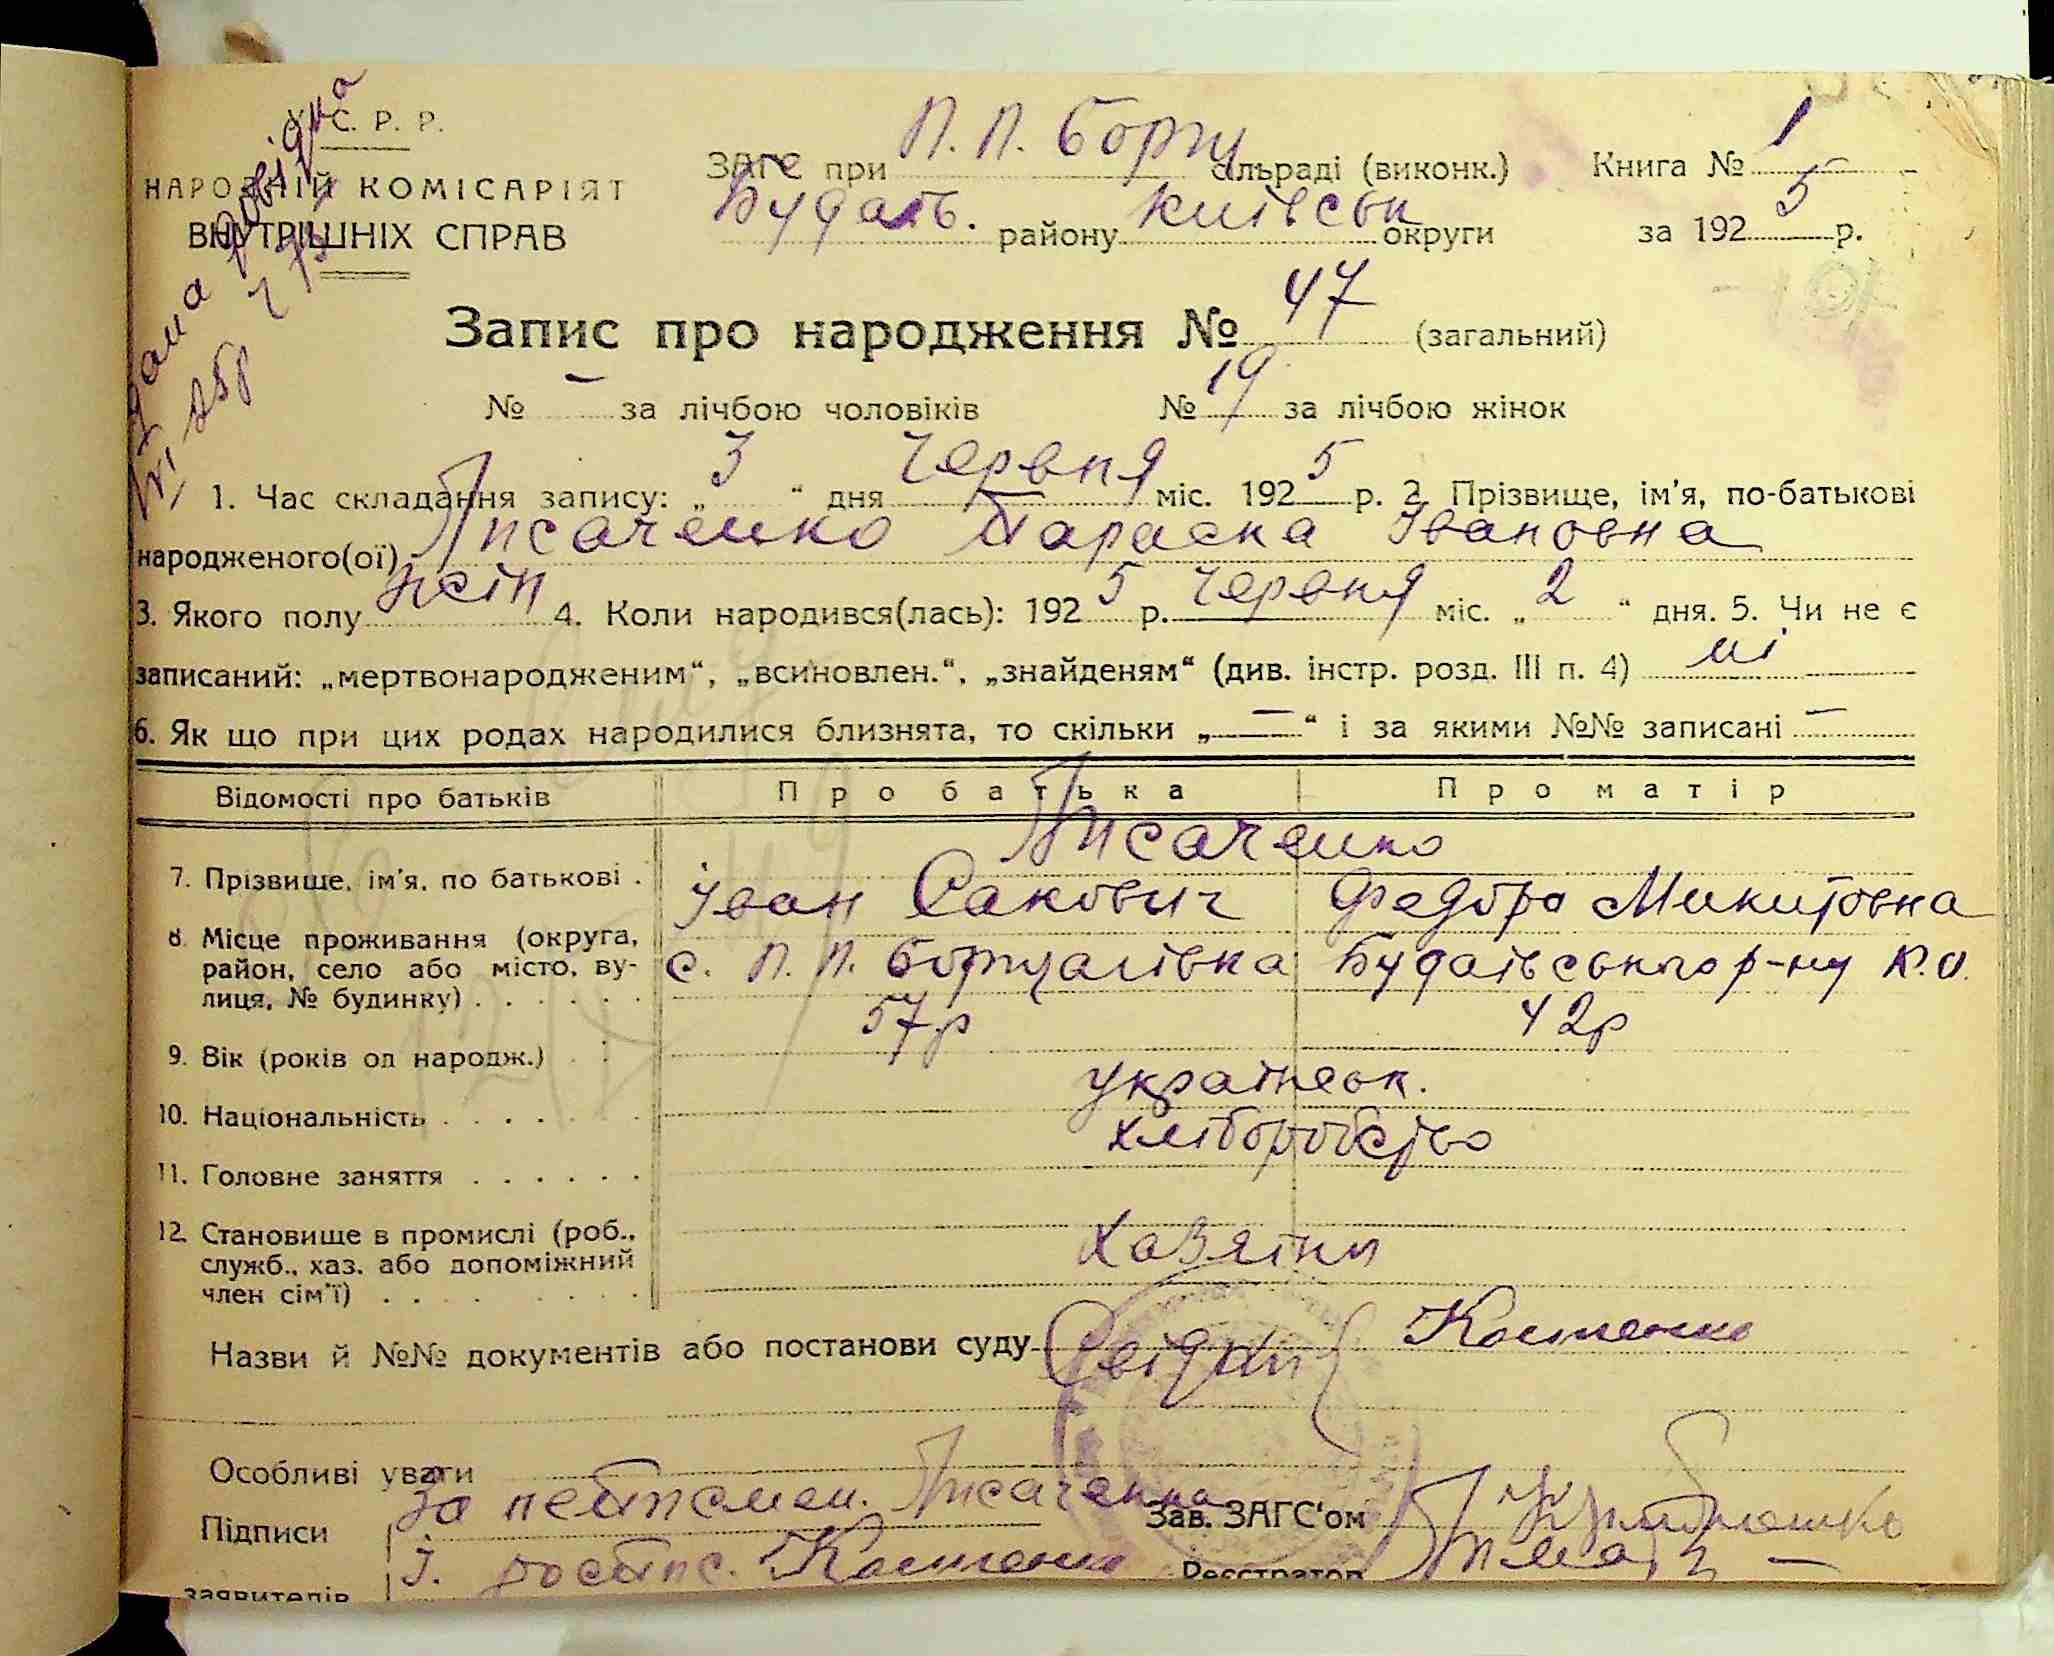 У. С. Р. Р.
НАРОДНІЙ КОМІСАРІЯТ
ВНУТРІШНІХ СПРАВ
ЗАГС при П. П. Борщ сільраді (виконк.) Книга № 1
Будаїв. району Київськ округи за 1925 р.
Запис про народження № 47 (загальний)
№ – за лічбою чоловіків № 19 за лічбою жінок
1. Час складання запису: „3“ дня Червня міс. 1925 р. 2. Прізвище, ім'я, по-батькові
народженого(ої) Писаченко Параска Івановна
3. Якого полу 4. Коли народився(лась): 1925 р. Червня міс. „2“ дня. 5. Чи не є
записаний: „мертвонародженим“, „всиновлен.“, „знайденям“ (див. інстр. розд. III п. 4) ні
6. Як що при цих родах народилися близнята, то скільки „—“ і за якими №№ записані –
Відомості про батьків Про батька Про матір
Писаченко
7. Прізвище, ім'я, по батькові . Іван Сакович Федора Микитовна
8. Місце проживання (округа,
район, село або місто, ву-
лиця, № будинку) . . . . . . с. П. П. Борщагівка Будаївського р-ну К.О.
9. Вік (років од народж.) . . 57р 42р
10. Національність . . . . . . . українськ.
11. Головне заняття . . . . . . хліборобство
12. Становище в промислі (роб.,
служб., хаз. або допоміжний
член сім'ї) . . . . . . . . Хазяїни
Назви й №№ документів або постанови суду Свідки Костенко
Особливі уваги
Підписи За неписмен. Писаченка Зав. ЗАГС'ом
заявителів І. роспис. Костенко Реєстратор